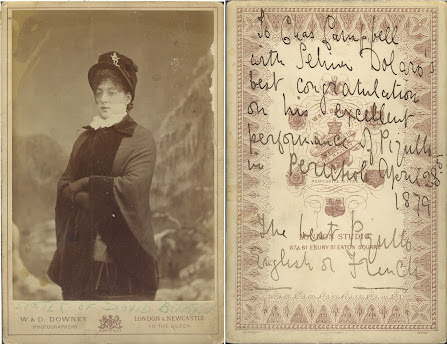 W. & D. DOWNEY
PHOTOGRAPHERS
LONDON & NEWCASTLE
TO THE QUEEN
To Chas Campbell
with Selina Dolaro's
best congratulation
on his excellent
performance of Piquillo
in Perichole April 28th
1879
The best Piquillo
English or French
STUDIO
57 & 61 EBURY ST EATON SQUARE